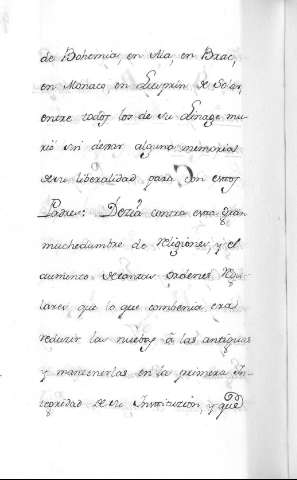 de Bohemia, en Alia, en Baac,
en Monaco, en Lieuprin de Solar,
entre todos los de su Linage mu-
rió sin dexar alguna memorias
de su liberalidad para con estos
Padres: Dezia contra esta gran
muchedumbre de Religiones, y el
aumento de tantas ordenes Regu-
lares, que lo que combenia era
reduzir las nuebas á las antiguas
y mantenerlas en la primera In-
tegridad de su Institución, y que